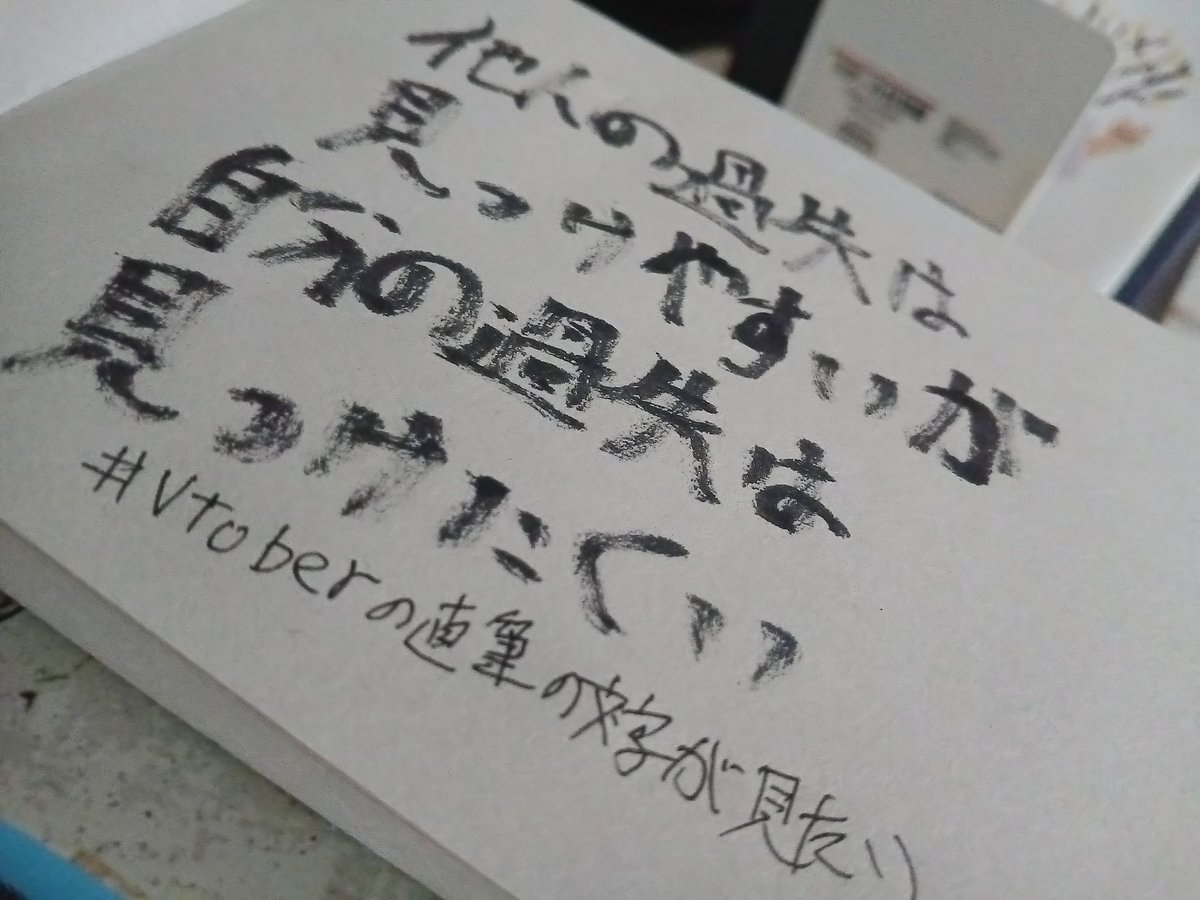 他人の過失は
見つけやすいが
自分の過失は
見つけにくい
#Vtoberの直筆の文字が見たい